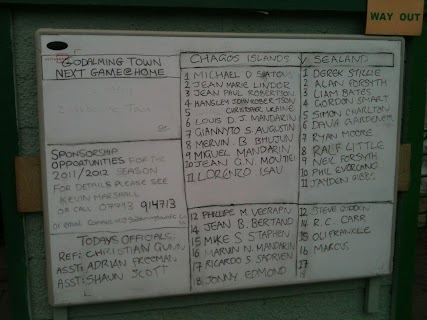 WAY OUT
GODALMING TOWN
NEXT GAME@HOME
SPONSORSHIP
OPPORTUNITIES FOR THE
2011/2012 SEASON
FOR DETAILS PLEASE SEE
KEVIN MARSHALL
OR CALL 07793 914713
or email
TODAYS OFFICIALS:
REF: CHRISTIAN GUNN
ASST: ADRIAN FREEMAN
ASST: SHAUN SCOTT
CHAGOS ISLANDS V SEALAND
1 MICHAEL D
2 JEAN MARIE LINDOR
3 JEAN PAUL ROBERTSON
4 HANSLEY JOHN ROBERTSON
5 CHRISTOPHER
6 LOUIS D. J. MANDARIN
7 GIANNYTO S. AUGUSTIN
8 MERVIN. B BHUJUN
9 MIGUEL MANDARIN
10 JEAN G.N. MONTIEI
11 LORENZO ISAU
12 PHILLIPE M. VEERAPN
14 JEAN B. BERTAND
15 MIKE S STAPHEN
16 MARVIN N. MANDARIN
17 RICARDO S SADRIEN
18 JONNY EDMOND
1 DEREK STILLIE
2 ALAN FORSYTH
3 LIAM BATES
4 GORDON SMART
5 SIMON CHARLTON
6 DAVID GARDENER
7 RYAN MOORE
8 RALF LITTLE
9 NEIL FORSYTH
10 PHIL EVORCONG
11 JAYDEN
12 STEVE
14 R.C. CARR
15 OLI FRANKLLE
16 MARCUS
17
18